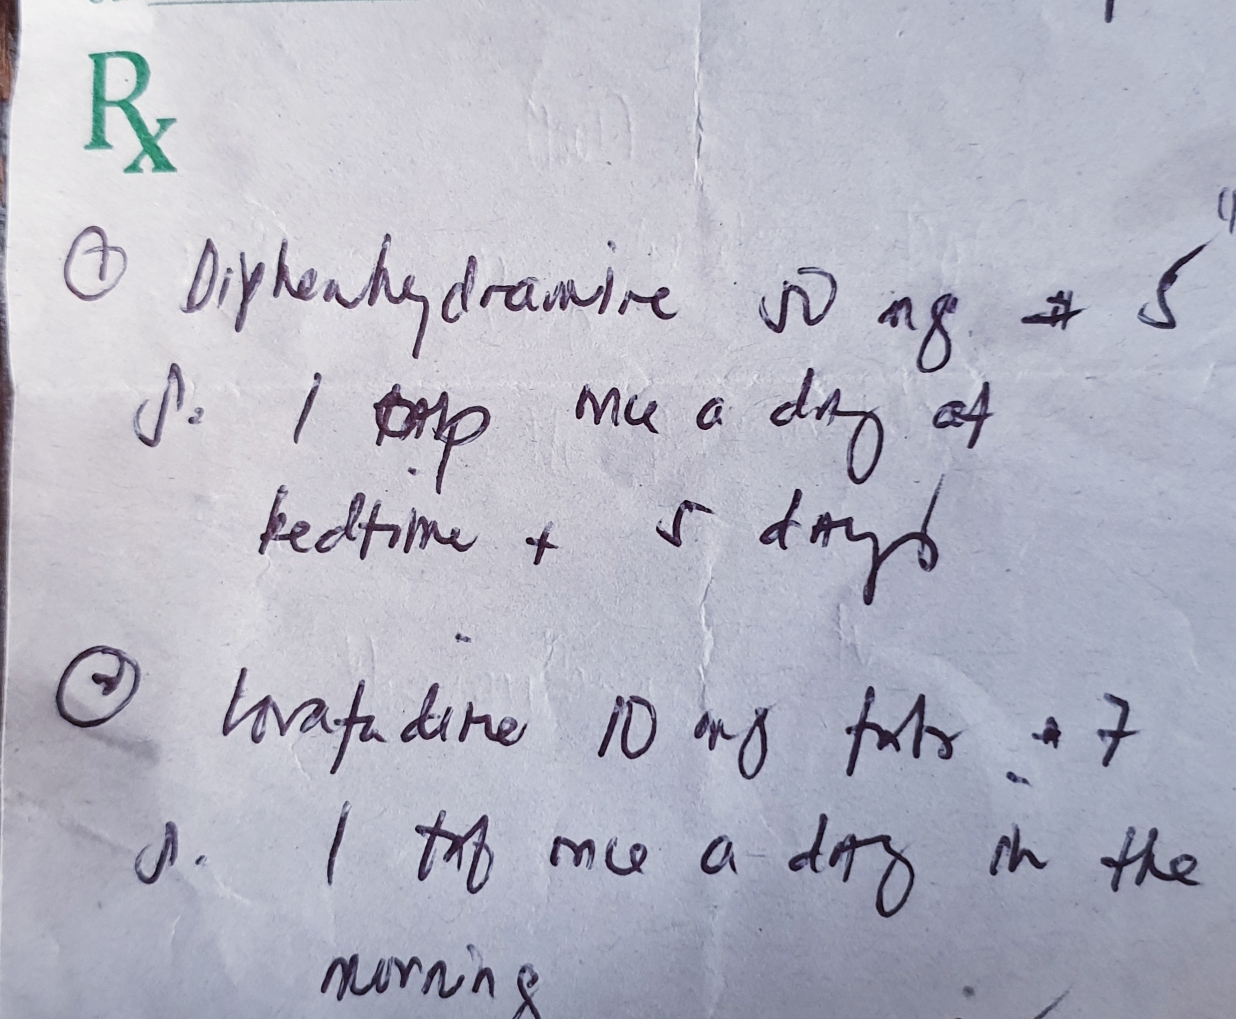 Rx
① Diphenhydramine 50 mg # 5
S. 1 cap once a day at
bedtime x 5 days
② Loratadine 10 mg tabs # 7
S. 1 tab once a day in the
morning